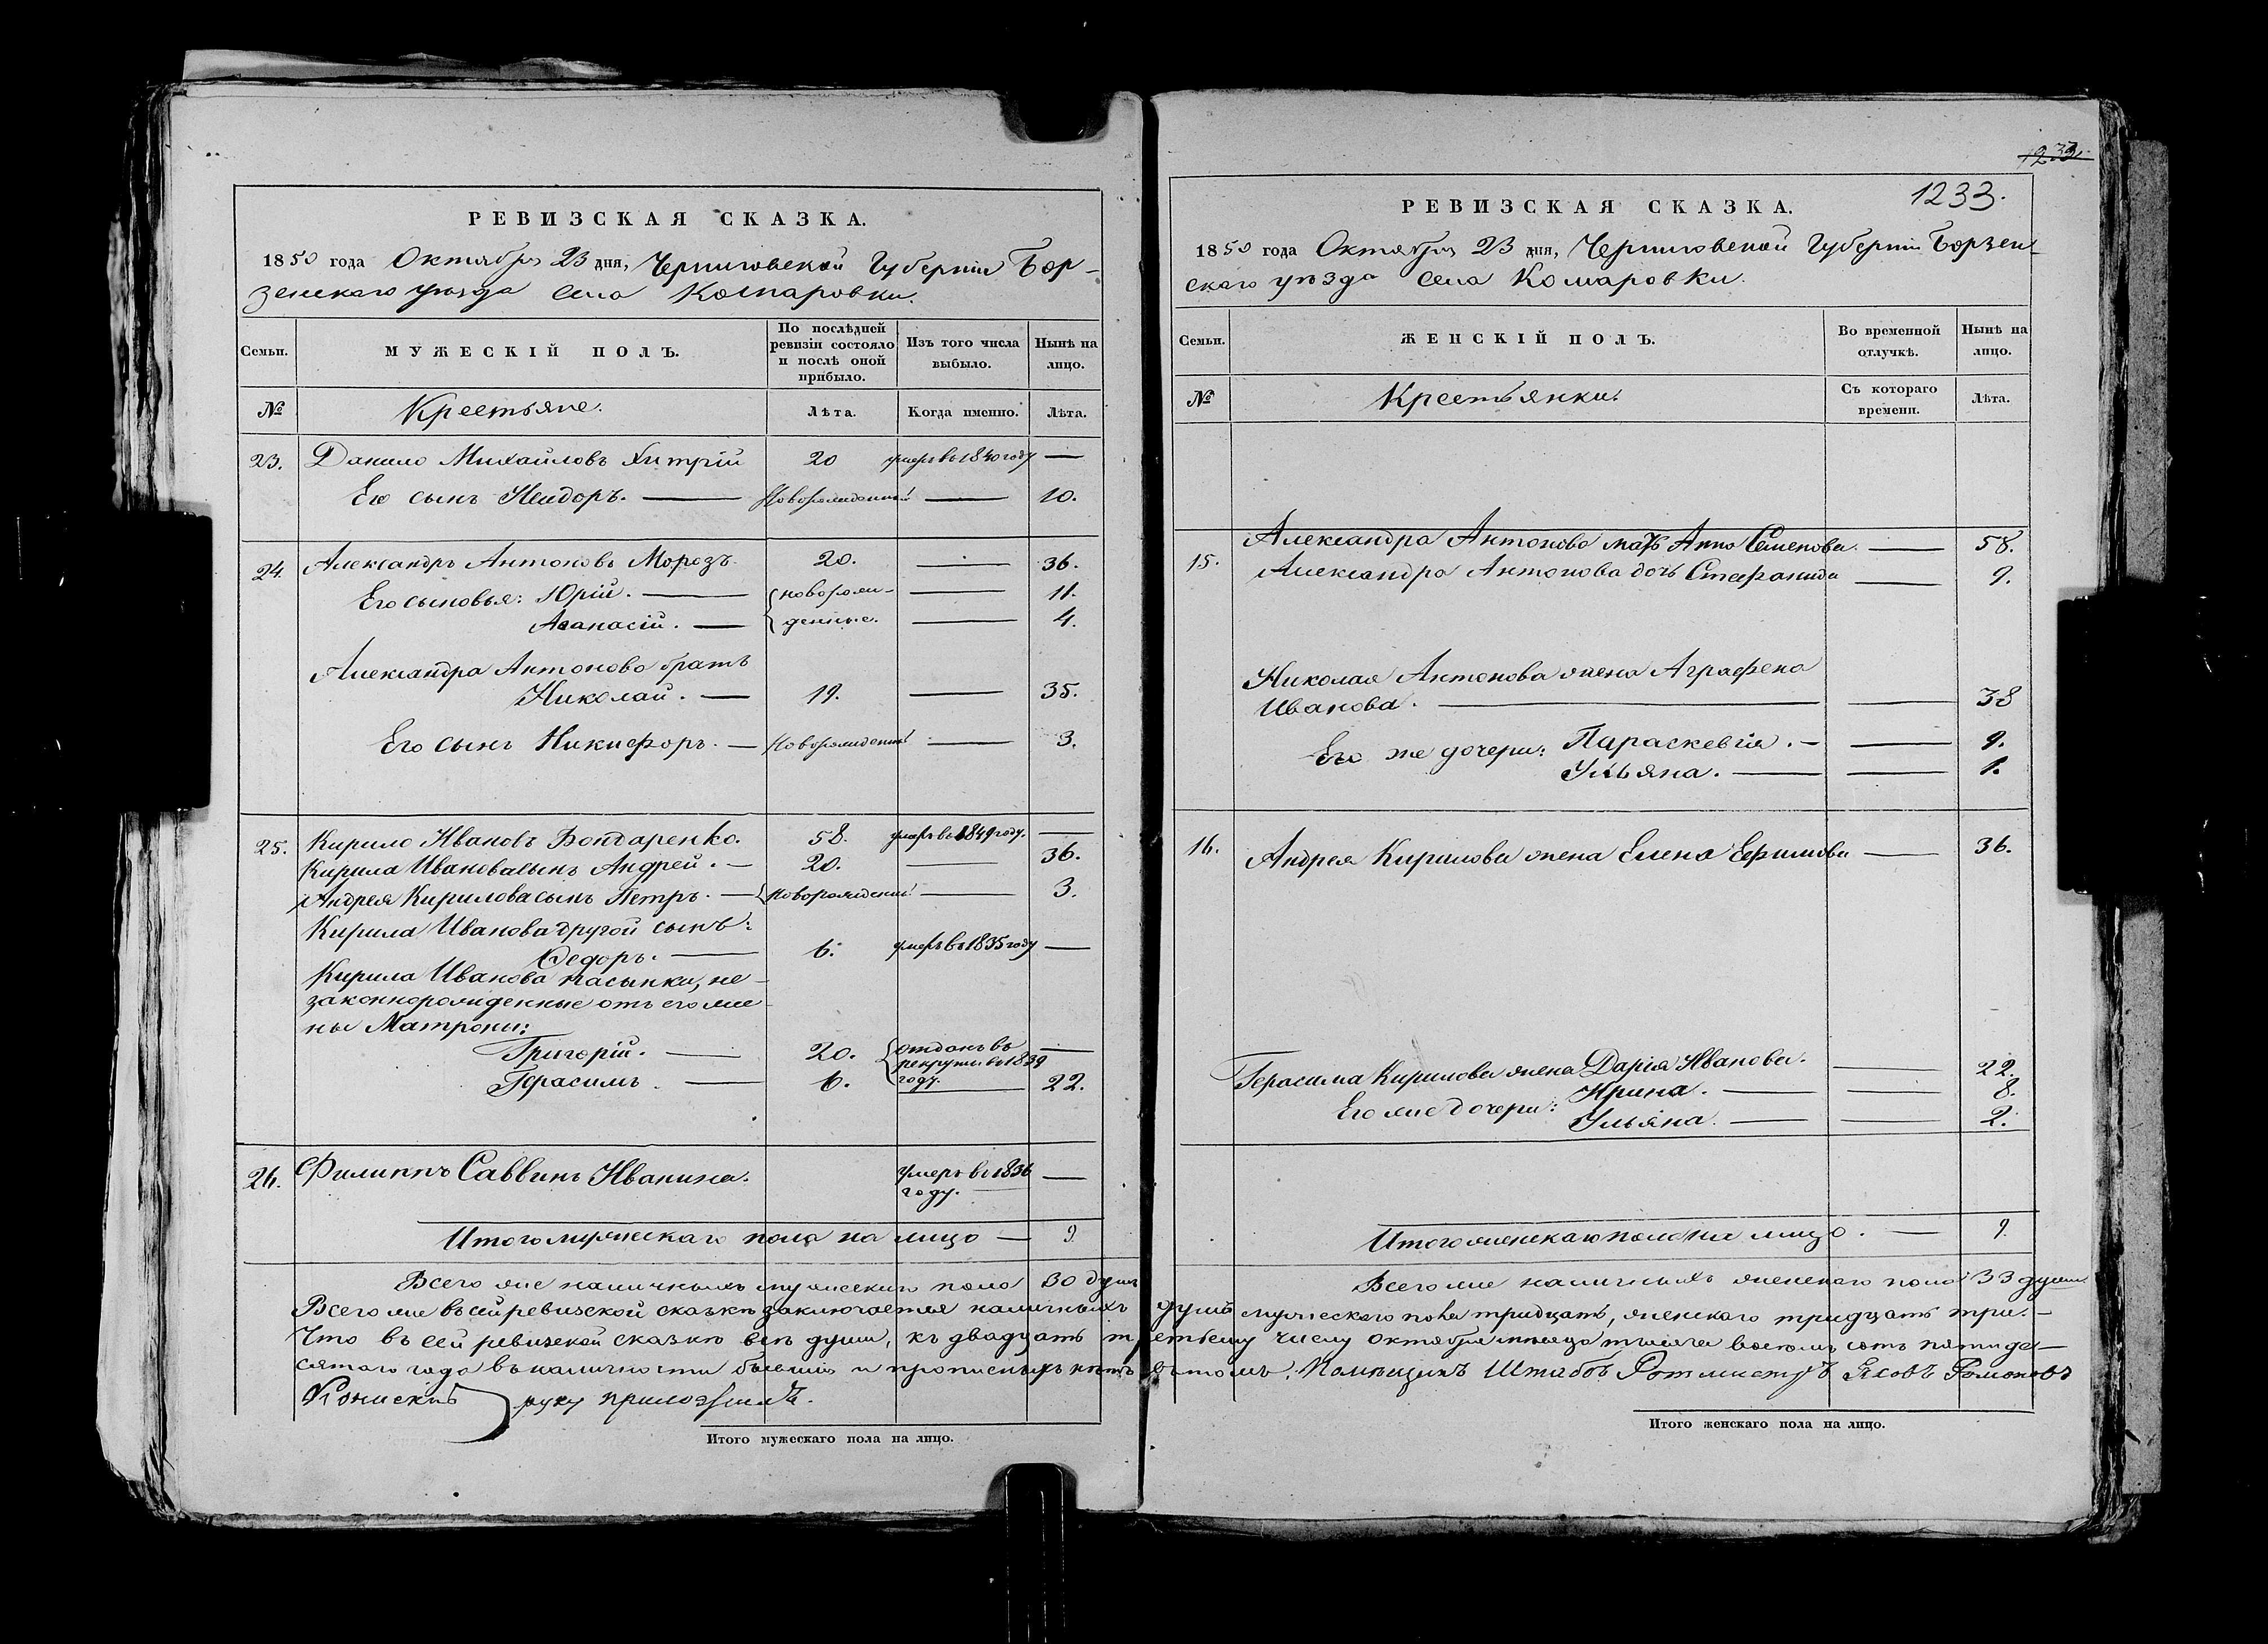 РЕВИЗСКАЯ СКАЗКА.
1850 года Октября 23 дня, Черниговской Губернiи Бор-
зенскаго уѣзда села Комаровки.
Семьи.
МУЖЕСКIЙ ПОЛЪ.
По послѣдней ревизiи состояло и послѣ оной прибыло.
Изъ того числа выбыло.
Нынѣ на лицо.
№
Крестьяне.
Лѣта.
Когда именно.
Лѣта.
23. Данило Михайловъ Хитрiй 20 умеръ въ 1840 году —
Его сынъ Исидоръ. — Новорожденный — 10.
24. Александръ Антоновъ Морозъ. 20. — 36.
Его сыновья: Юрiй. — { новорож- — 11.
Аѳанасiй. — { денные. — 4.
Александра Антонова братъ
Николай. — 19. — 35.
Его сынъ Никифоръ. — Новорожденный — 3.
25. Кирило Ивановъ Бондаренко. 58. умеръ въ 1849 году. —
Кирила Иванова сынъ Андрей. — 20. — 36.
Андрея Кирилова сынъ Петръ. — { новорожденный — 3.
Кирила Иванова другой сынъ:
Ѳедоръ. — 6. умеръ въ 1835 году —
Кирила Иванова пасынки, не-
законнорожденные отъ его же-
ны Матроны:
Григорiй. — 20. { отданъ въ рекруты въ 1839 году. —
Герасимъ. — 6. — 22.
26. Филиппъ Саввинъ Иванина. умеръ въ 1836 году. —
Итого мужескаго пола на лицо — 9
Всего же наличныхъ мужескаго пола 30 душъ
Итого мужескаго пола на лицо.
1233.
1233.
РЕВИЗСКАЯ СКАЗКА.
1850 года Октября 23 дня, Черниговской Губернiи Борзен-
скаго уѣзда села Комаровки.
Семьи.
ЖЕНСКIЙ ПОЛЪ.
Во временной отлучкѣ.
Нынѣ на лицо.
№
Крестьянки.
Съ котораго времени.
Лѣта.
15. Александра Антонова мать Анна Семенова. — 58.
Александра Антонова дочь Стефанида — 9.
Николая Антонова жена Аграфена
Иванова. — 38
Его же дочери: Параскевiя. — 9.
Ульяна. — 1.
16. Андрея Кирилова жена Елена Ефимова — 36.
Герасима Кирилова жена Дарiя Иванова. — 22.
Его же дочери: Ирина. — 8.
Ульяна. — 2.
Итого женскаго пола на лицо. — 9.
Всего же наличныхъ женскаго пола 33 души
Всего же въ сей ревизской сказкѣ заключается наличныхъ душъ мужескаго пола тридцать, женскаго тридцать три. —
Что въ сей ревизской сказкѣ всѣ души, къ двадцать третьему числу октября мѣсяца тысяча восемь сотъ пятиде-
сятаго года въ наличности бывшiя и прописныхъ нѣтъ въ томъ, Помѣщикъ Штабъ Ротмистръ
руку приложилъ.
Итого женскаго пола на лицо.